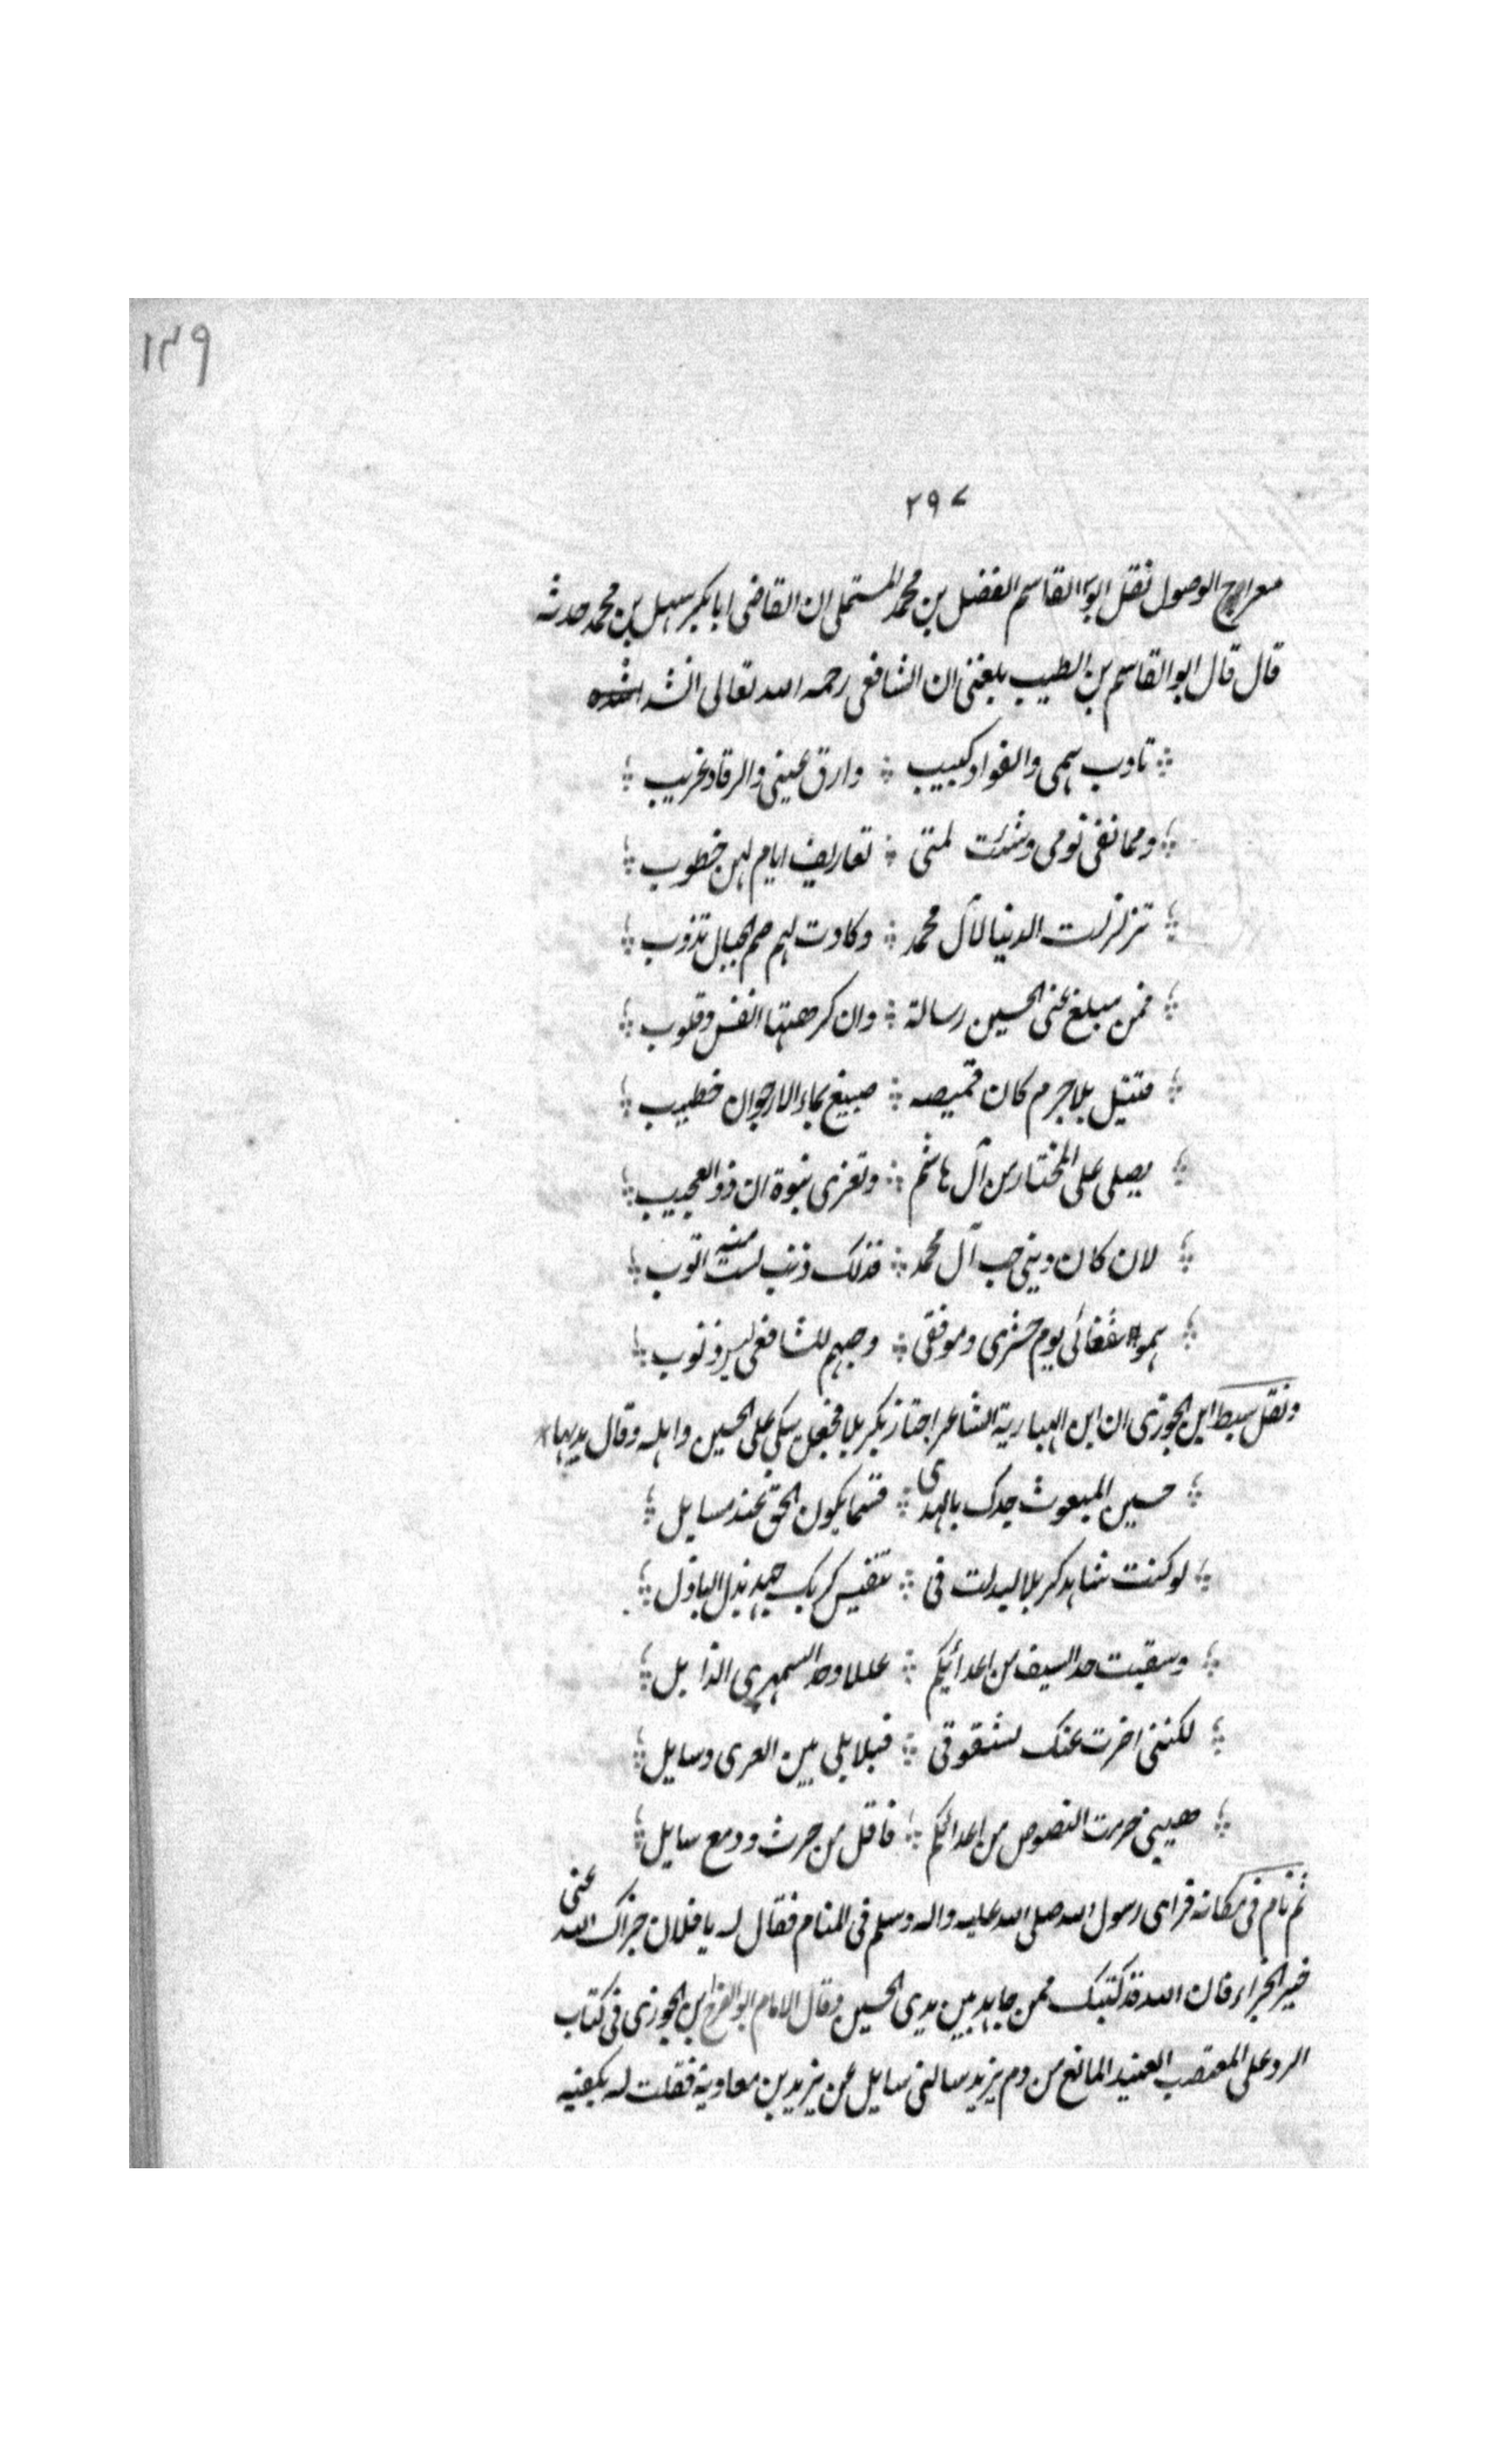 ١٤٩
٢٩٧
معراج الوصول نقل ابو القاسم الفضل بن محمد المستملى ان القاضى ابا بكر سهل بن محمد حدثه
قال قال ابو القاسم بن الطيب بلغنى ان الشافعى رحمه الله تعالى انشد
تاوب همى والفواد كئيب وارق عينى والرقاد غريب
ومما نفى نومى وشيبت لمتى تصاريف ايام لهن خطوب
تزلزلت الدنيا لآل محمد وكادت لهم صم الجبال تذوب
فمن مبلغ عنى الحسين رسالة وان كرهتها انفس وقلوب
قتيل بلا جرم كان قميصه صبيغ بماء الارجوان خطيب
يصلى على المختار من آل هاشم وتغزى بنوه ان ذو العجيب
لان كان دينى حب آل محمد فذلك ذنب لست منه اتوب
همو شفعائى يوم حشرى وموقفى وحبهم للشافعى ذنوب
ونقل سبط ابن الجوزى ان ابن الهبارية الشاعر اجتاز بكربلا فجعل يبكى على الحسين واهله وقال بديها
حسين المبعوث جدك بالهدى قسما يكون الحق عند مسايل
لو كنت شاهد كربلا لبذلت فى تنفيس كربك جهد بذل الباذل
وسقيت حد السيف من اعدائكم عللا وحد السمهرى الذابل
لكننى اخرت عنك لشقوتى فبلابلى بين الغرى وسايل
هبنى حرمت النصر من اعدائكم فاقل من حزن ودمع سايل
ثم نام فى مكانه فراى رسول الله صلى الله عليه واله وسلم فى المنام فقال له يا فلان جزاك الله عنى
خير الجزاء فان الله قد كتبك ممن جاهد بين يدى الحسين وقال الامام ابو الفرج ابن الجوزى فى كتاب
الرد على المتعصب العنيد المانع من ذم يزيد سالنى سايل عن يزيد بن معاوية فقلت له يكفيه